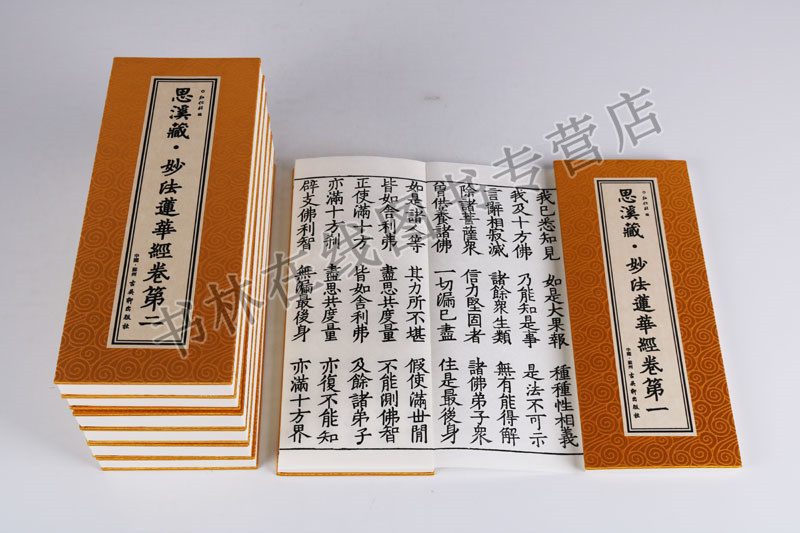 思溪藏·妙法蓮華經卷第二
中國·蘇州 古吳軒出版社
我已悉知見 如是大果報 種種性相義
我及十方佛 乃能知是事 是法不可示
言辭相寂滅 諸餘衆生類 無有能得解
除諸菩薩衆 信力堅固者 諸佛弟子衆
曾供養諸佛 一切漏已盡 住是最後身
如是諸人等 其力所不堪 假使滿世間
皆如舍利弗 盡思共度量 不能測佛智
正使滿十方 皆如舍利弗 及餘諸弟子
亦滿十方刹 盡思共度量 亦復不能知
辟支佛利智 無漏最後身 亦滿十方界
思溪藏·妙法蓮華經卷第一
中國·蘇州 古吳軒出版社
书林在线图书专营店